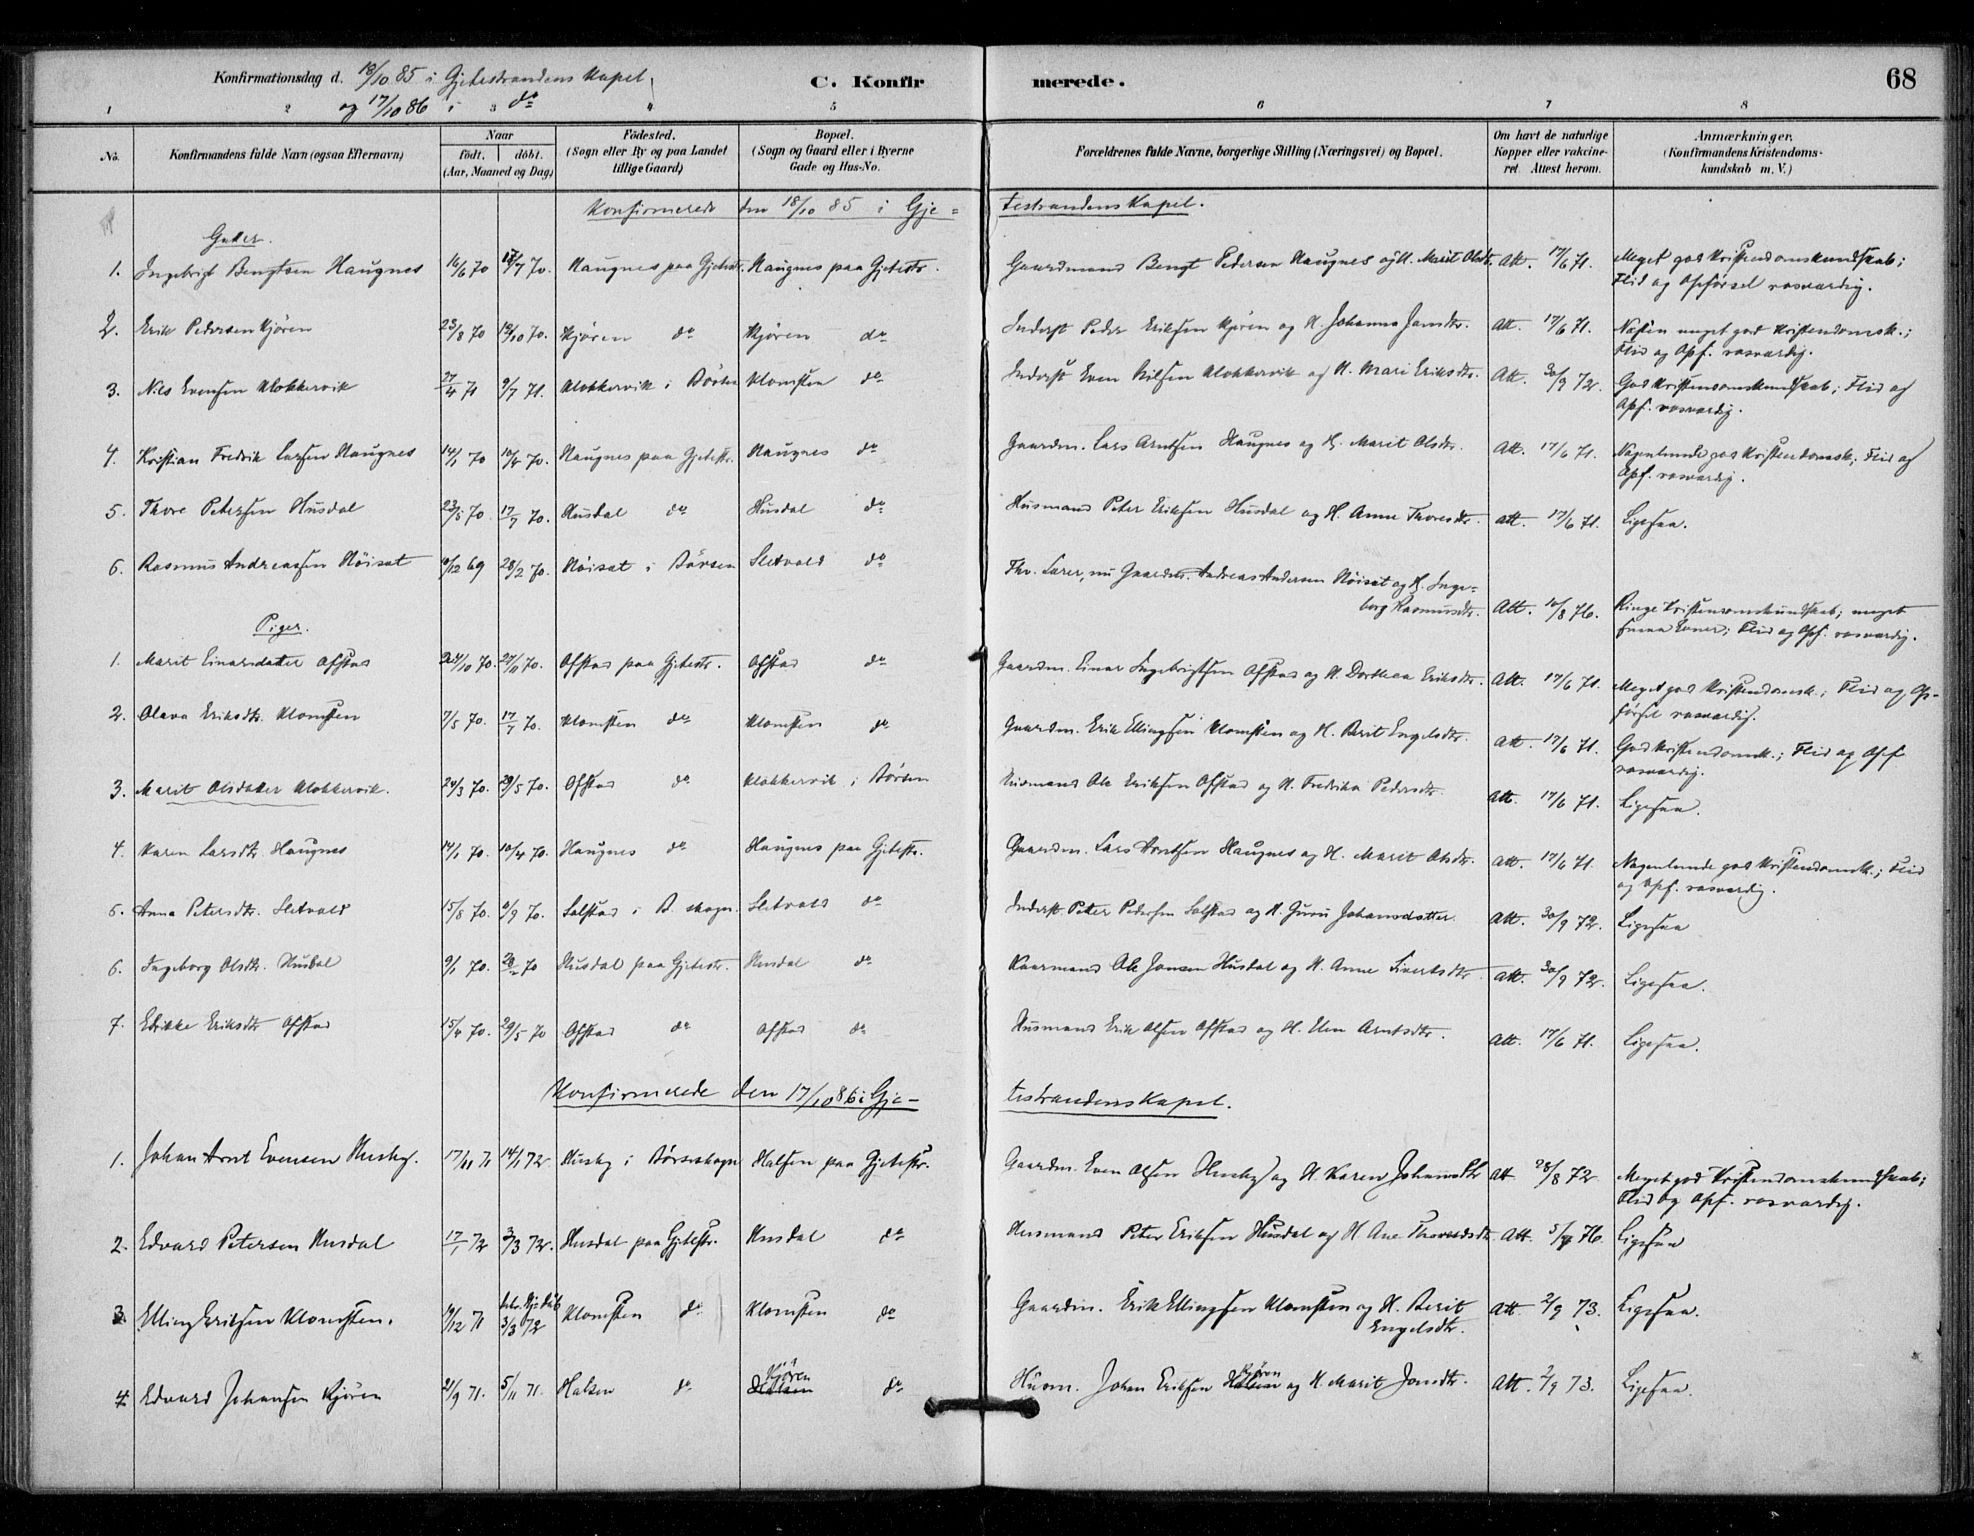 Konfirmationsdag d. 18/10 85 i Gjetestrandens Kapel
C. Konfirmerede. 68
og 17/10 86 i do
1 2 3 4 5 6 7 8
No. Konfirmandens fulde Navn (ogsaa Efternavn) Naar födt. döbt. (Aar, Maaned og Dag) Födested. (Sogn eller By og paa Landet tillige Gaard) Bopæl. (Sogn og Gaard eller i Byerne Gade og Hus-No. Forældrenes fulde Navne, borgerlige Stilling (Næringsvei) og Bopæl. Om havt de naturlige Kopper eller vakcineret. Attest herom. Anmærkninger. (Konfirmandens Kristendomskundskab m. V.)
Konfirmerede den 18/10 85 i Gjetestrandens Kapel.
Gutter.
1. Ingebrigt Bengtsen Haugnes 16/6 70 17/7 70. Haugnes paa Gjetestr. Haugnes paa Gjetestr. Gaardmand Bengt Pedersen Haugnes og H. Marit Olsdtr. Att. 17/6 71. Meget god Kristendomskundskab;
Flid og Opførsel rosværdig.
2. Erik Pedersen Kjøren 23/8 70 19/10 70. Kjøren do Kjøren do Inderst Peder Eriksen Kjøren og H. Johanna Jonsdtr. Att. 17/6 71. Næsten meget god Kristendomsk.;
Flid og Opf. rosværdig.
3. Nils Evensen Klokkervik 27/4 71 9/7 71. Klokkervik i Børsen Klomsten do Inderst Even Nilsen Klokkervik og H. Mari Eriksdtr. Att. 30/9 72. God Kristendomskundskab; Flid og
Opf. rosværdig.
4. Kristian Fredrik Larsen Haugnes 14/1 70 10/4 70. Haugnes paa Gjetestr. Haugnes do Gaardm. Lars Arntsen Haugnes og H. Marit Olsdtr. Att. 17/6 71. Nogenlunde god Kristendomsk; Flid og
Opf. rosværdig.
5. Thore Petersen Husdal 23/5 70 17/7 70. Husdal do Husdal do Husmand Peter Eriksen Husdal og H. Anne Thoresdtr. Att. 17/6 71. Ligesaa.
6. Rasmus Andreassen Høiset /12 69 28/2 70. Høiset i Børsen Sletvold do Fhv. Lærer, nu Gaardm. Andreas Andersen Høiset og H. Inge-
borg Rasmusdtr. Att. 10/8 76. Ringe Kristendomskundskab; meget
smaa Evner; Flid og Opf. rosværdig.
Piger.
1. Marit Einarsdatter Ofstad 24/10 70. 27/11 70. Ofstad paa Gjetestr. Ofstad do Gaardm. Einar Ingebrigtsen Ofstad og H. Dorthea Eriksdtr. Att. 17/6 71. Meget god Kristendomsk.; Flid og Op-
førsel rosværdig.
2. Olava Eriksdtr. Klomsten 7/5 70. 17/7 70. Klomsten do Klomsten do Gaardm. Erik Ellingsen Klomsten og H. Berit Engelsdtr. Att. 17/6 71. God Kristendomsk.; Flid og Opf
rosværdig.
3. Marit Olsdatter Klokkervik. 24/3 70. 29/5 70. Ofstad do Klokkervik i Børsen Husmand Ole Eriksen Ofstad og H. Fredrika Pedersdtr. Att. 17/6 71. Ligesaa.
4. Karen Larsdtr. Haugnes 14/1 70. 10/4 70. Haugnes do Haugnes paa Gjetestr. Gaardm. Lars Arntsen Haugnes og H. Marit Olsdtr. Att. 17/6 71. Nogenlunde god Kristendomsk.; Flid
og Opf. rosværdig.
5. Anna Petersdtr. Sletvold 15/8 70. /9 70. Solstad i B. skogn. Sletvold do Inderst Peter Pedersen Solstad og H. Guru Johansdatter. Att. 30/9 72. Ligesaa
6. Ingeborg Olsdtr. Husdal 9/1 70. 70 Husdal paa Gjetestr. Husdal do Ole Jonsen Husdal og H. Anne Sivertsdtr. Att. 30/9 72. Ligesaa.
7. Eriksdtr Ofstad 15/4 70. 29/5 70 Ofstad do Ofstad do Husmand Erik Olsen Ofstad og H. Elen Arntsdtr. Att. 17/6 71. Ligesaa.
Konfirmerede den 17/10 86 i Gjetestrandens Kapel.
1. Johan Arnt Evensen Husby. 17/11 71 14/1 72 Husby i Børseskogn Halsen paa Gjetestr. Gaardm. Even Olsen Husby og H. Karen Johansdtr Att 28/8 72 Meget god Kristendomskundskab;
Flid og Opf. rosværdig.
2. Edvard Petersen Husdal 17/1 72 3/3 72. Husdal paa Gjetestr. Husdal do Husmand Peter Eriksen Husdal og H Ane Thoresdtr Att. 76. Ligesaa
3. Elling Eriksen Klomsten. 19/12 71 3/3 72 Klomsten do Klomsten do Gaardm. Erik Ellingsen Klomsten og H. Berit
Engelsdtr. Att. 2/9 73. Ligesaa.
4. Edvard Johansen Kjøren 21/9 71. 5/11 71. Halsen do Halsen Kjören do Husm. Johan Eriksen Halsen Kjören og H. Marit Jonsdtr. Att. 2/9 73. Ligesaa.